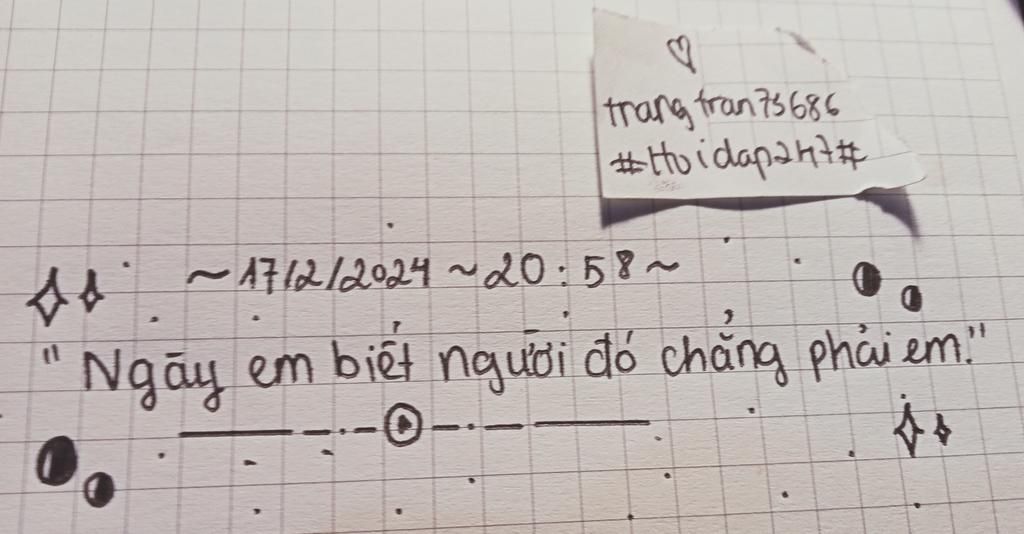 trangtran75686
#Hoidap247#
~17/2/2024 ~20:58~
"Ngày em biết người đó chẳng phải em."